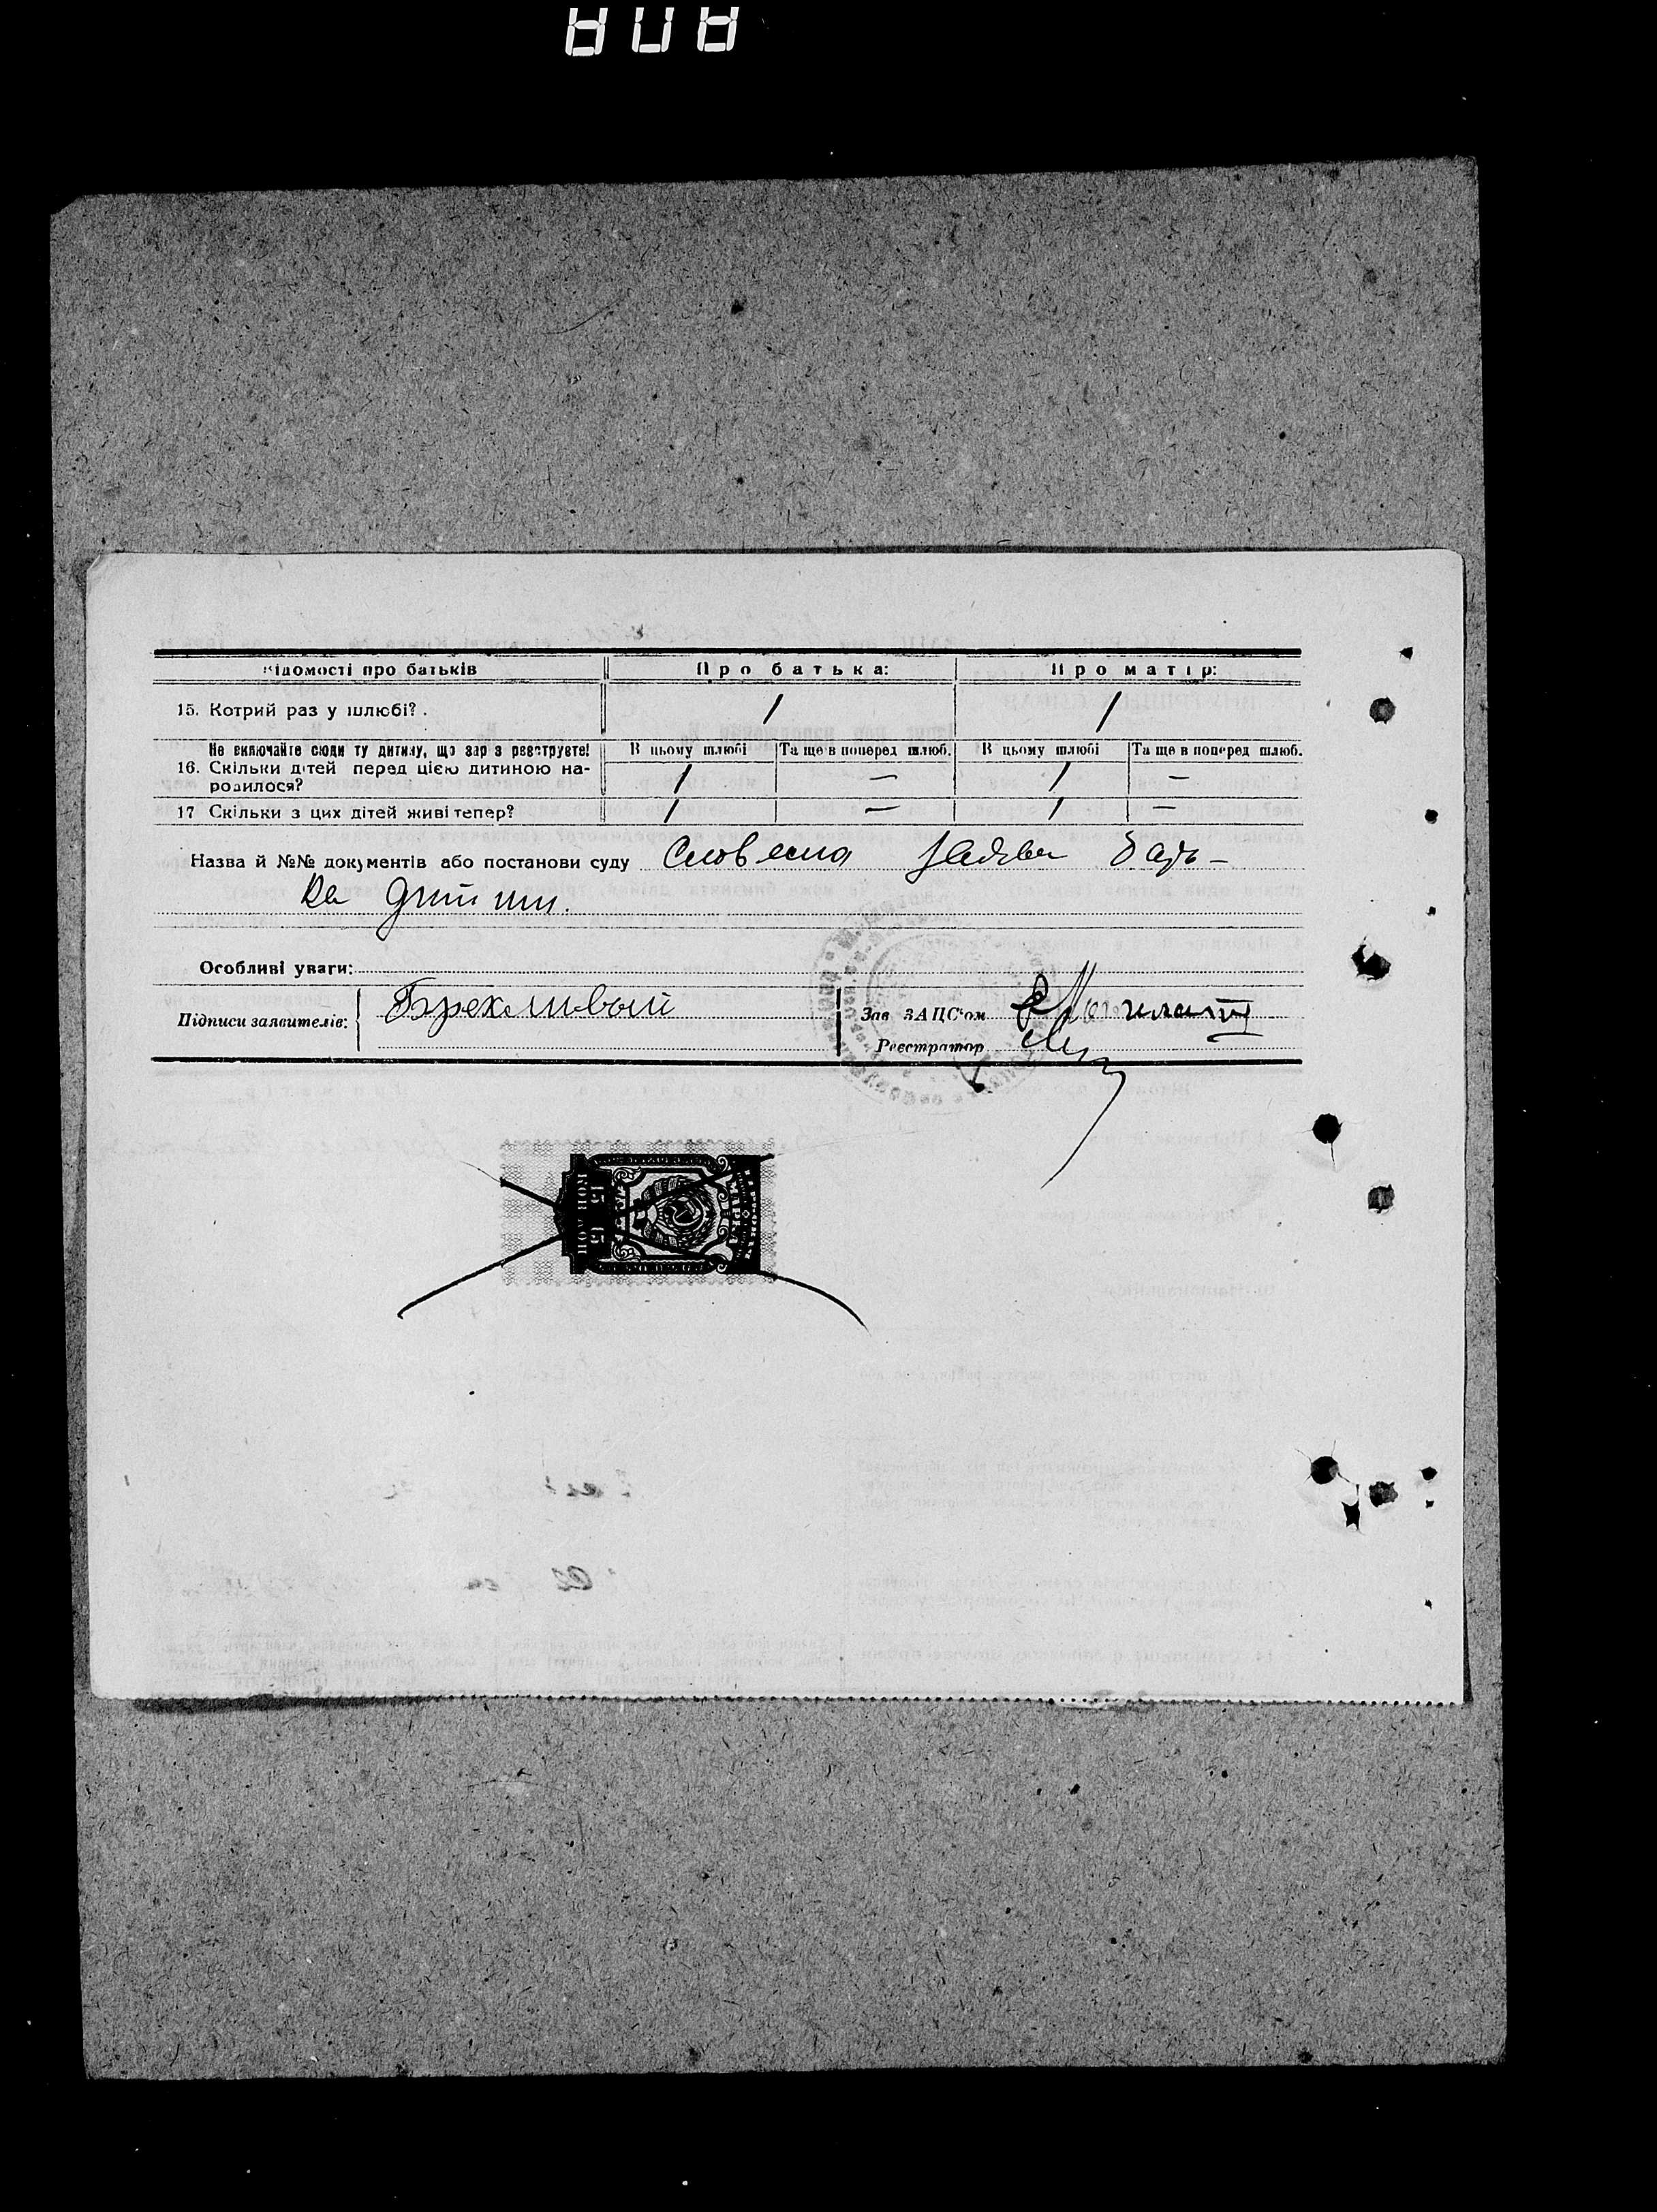 Відомості про батьків Про батька: Про матір:
15. Котрий раз у шлюбі? . 1 1
Не включайте сюди ту дитину, що зараз реєструєте! В цьому шлюбі Та ще в поперед шлюб. В цьому шлюбі Та ще в поперед шлюб.
16. Скільки дітей перед цією дитиною на-
родилося? 1 — 1 —
17 Скільки з цих дітей живі тепер? 1 — 1 —
Назва й №№ документів або постанови суду Словесна заява бать-
ка дитини.
Особливі уваги:
Підписи заявителів: Брехливый Зав ЗАЦС'ом
Реєстратор
15 65
КОП КОП